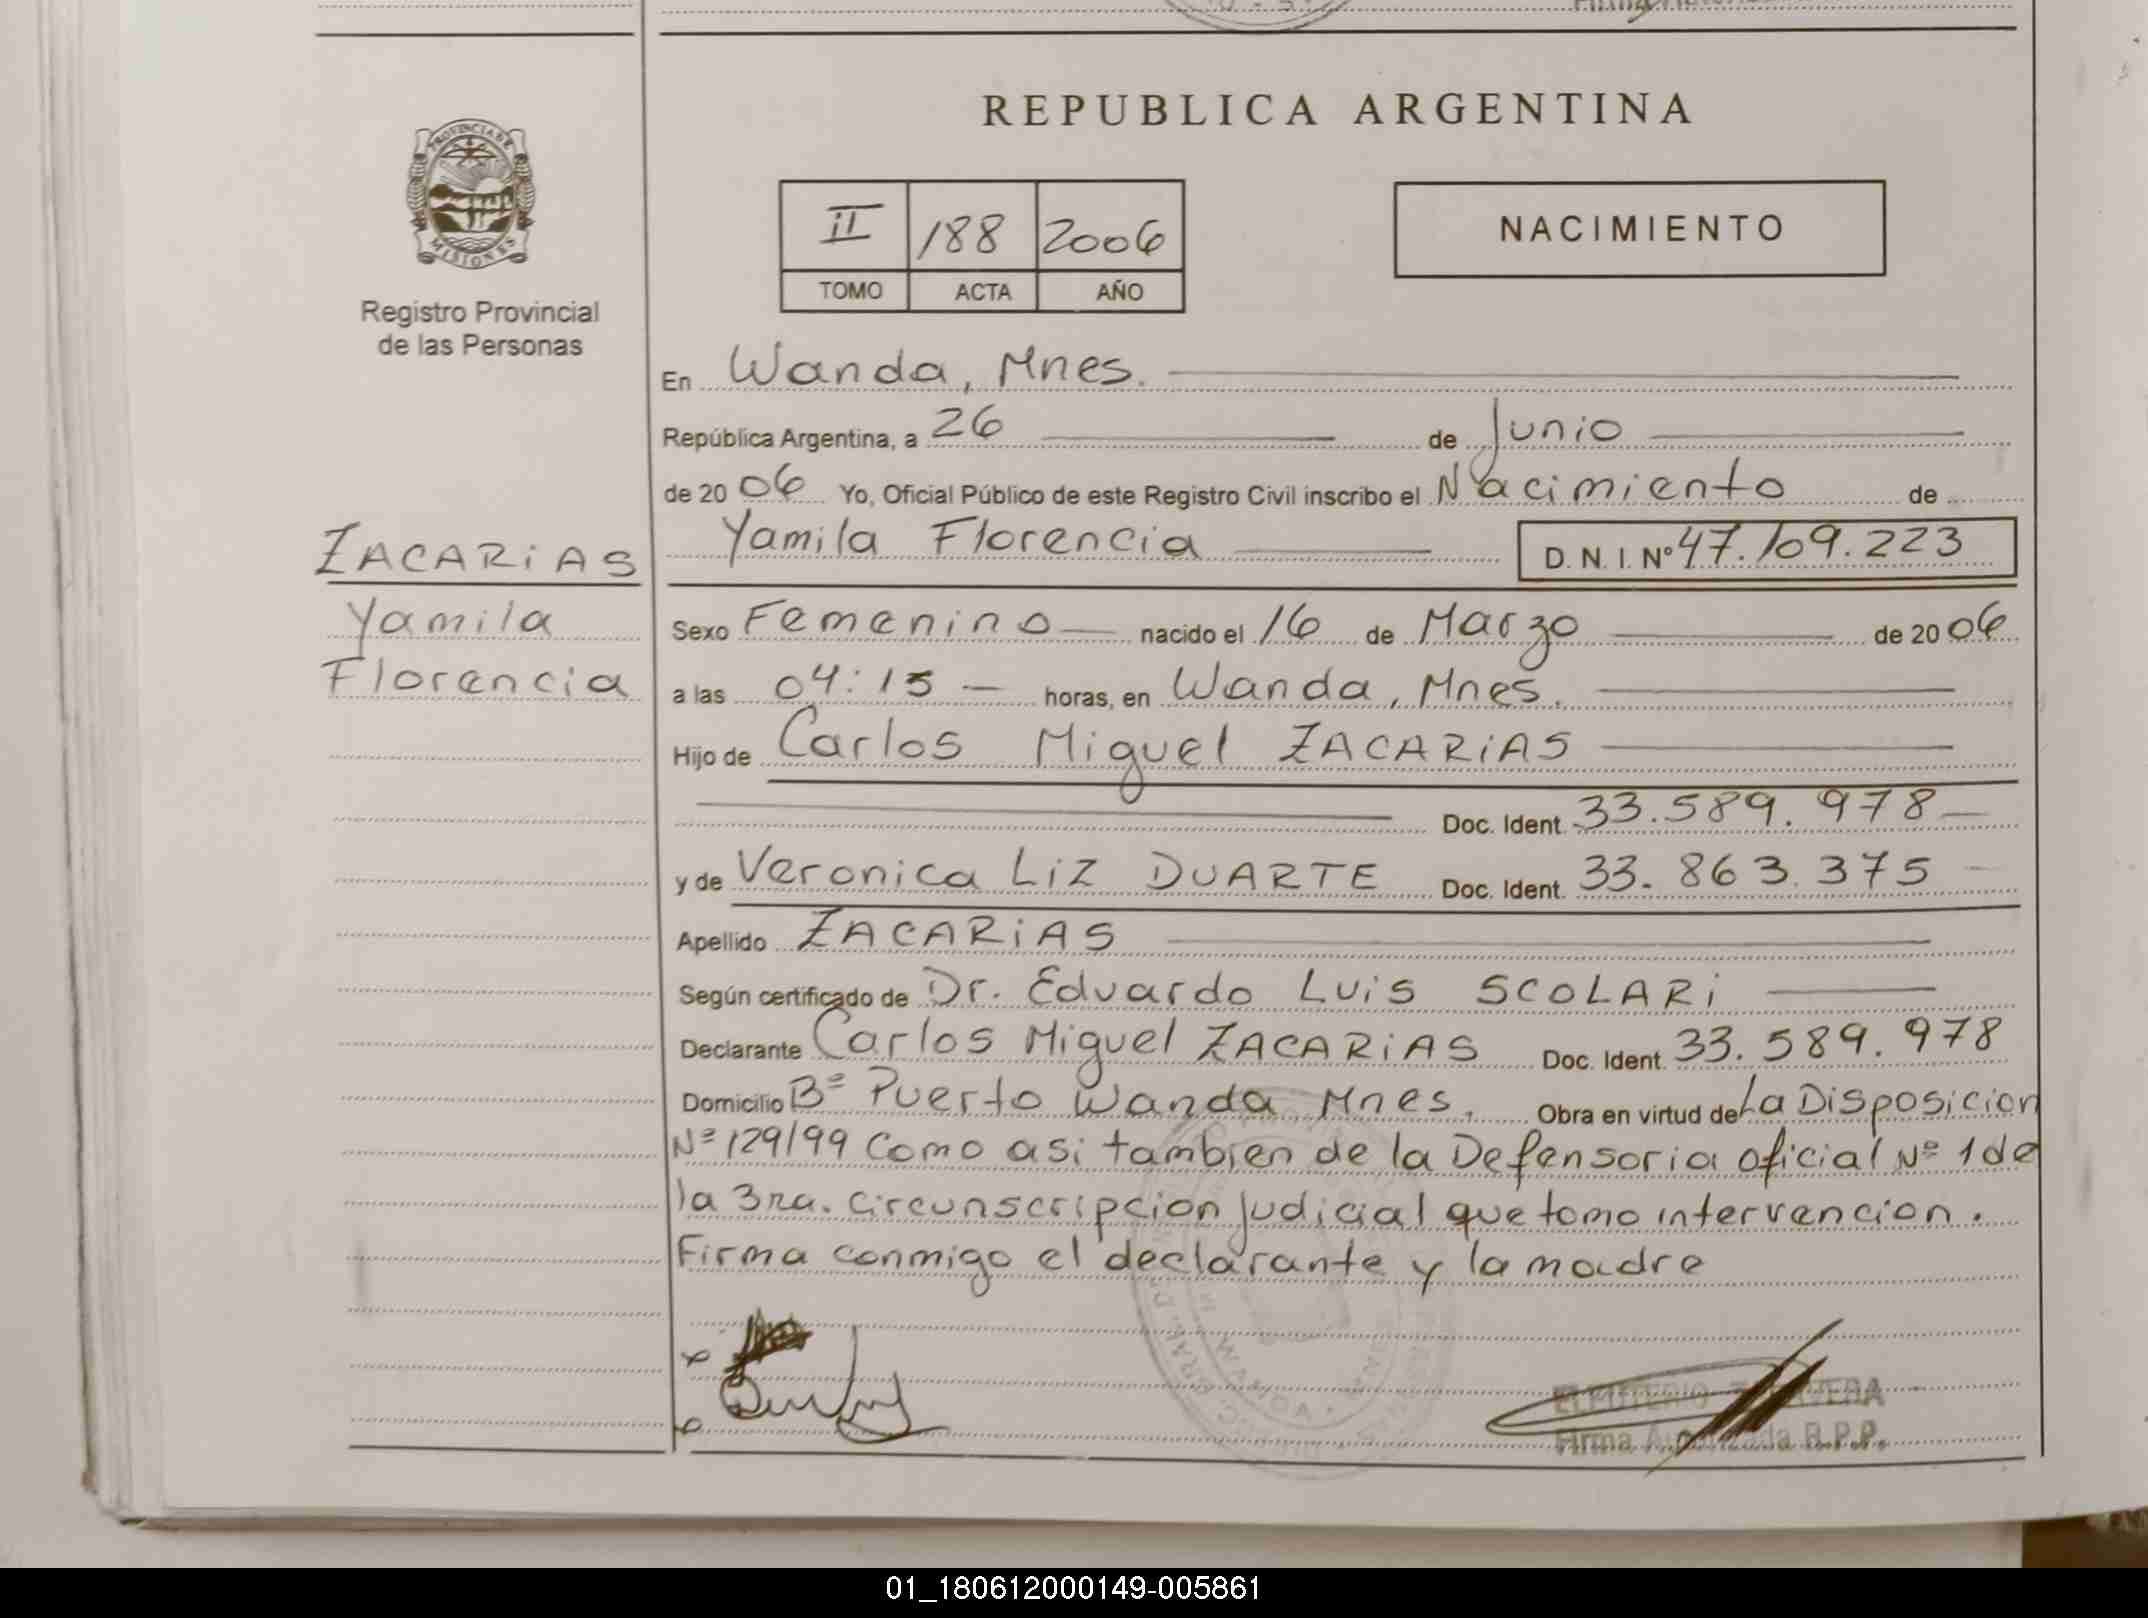 REPUBLICA ARGENTINA
PROVINCIA DE MISIONES
Registro Provincial
de las Personas
II 188 2006
TOMO ACTA AÑO
NACIMIENTO
En Wanda, Mnes.
República Argentina, a 26 de Junio
de 2006 Yo, Oficial Público de este Registro Civil inscribo el Nacimiento de
Yamila Florencia D. N. I. Nº 47.109.223
ZACARiAS
Yamila
Florencia
Sexo Femenino nacido el 16 de Marzo de 2006
a las 04:15 horas, en Wanda, Mnes.
Hijo de Carlos Miguel ZACARiAS
Doc. Ident. 33.589.978
y de Veronica Liz DUARTE Doc. Ident. 33.863.375
Apellido ZACARiAS
Según certificado de Dr. Eduardo Luis SCOLARi
Declarante Carlos Miguel ZACARiAS Doc. Ident. 33.589.978
Domicilio Bº Puerto Wanda, Mnes. Obra en virtud de La Disposicion
Nº 129/99 Como asi tambien de la Defensoria oficial Nº 1 de
la 3ra. circunscripcion judicial que tomo intervencion.
Firma conmigo el declarante y la madre
Firma Autorizada R.P.P.
01_180612000149-005861